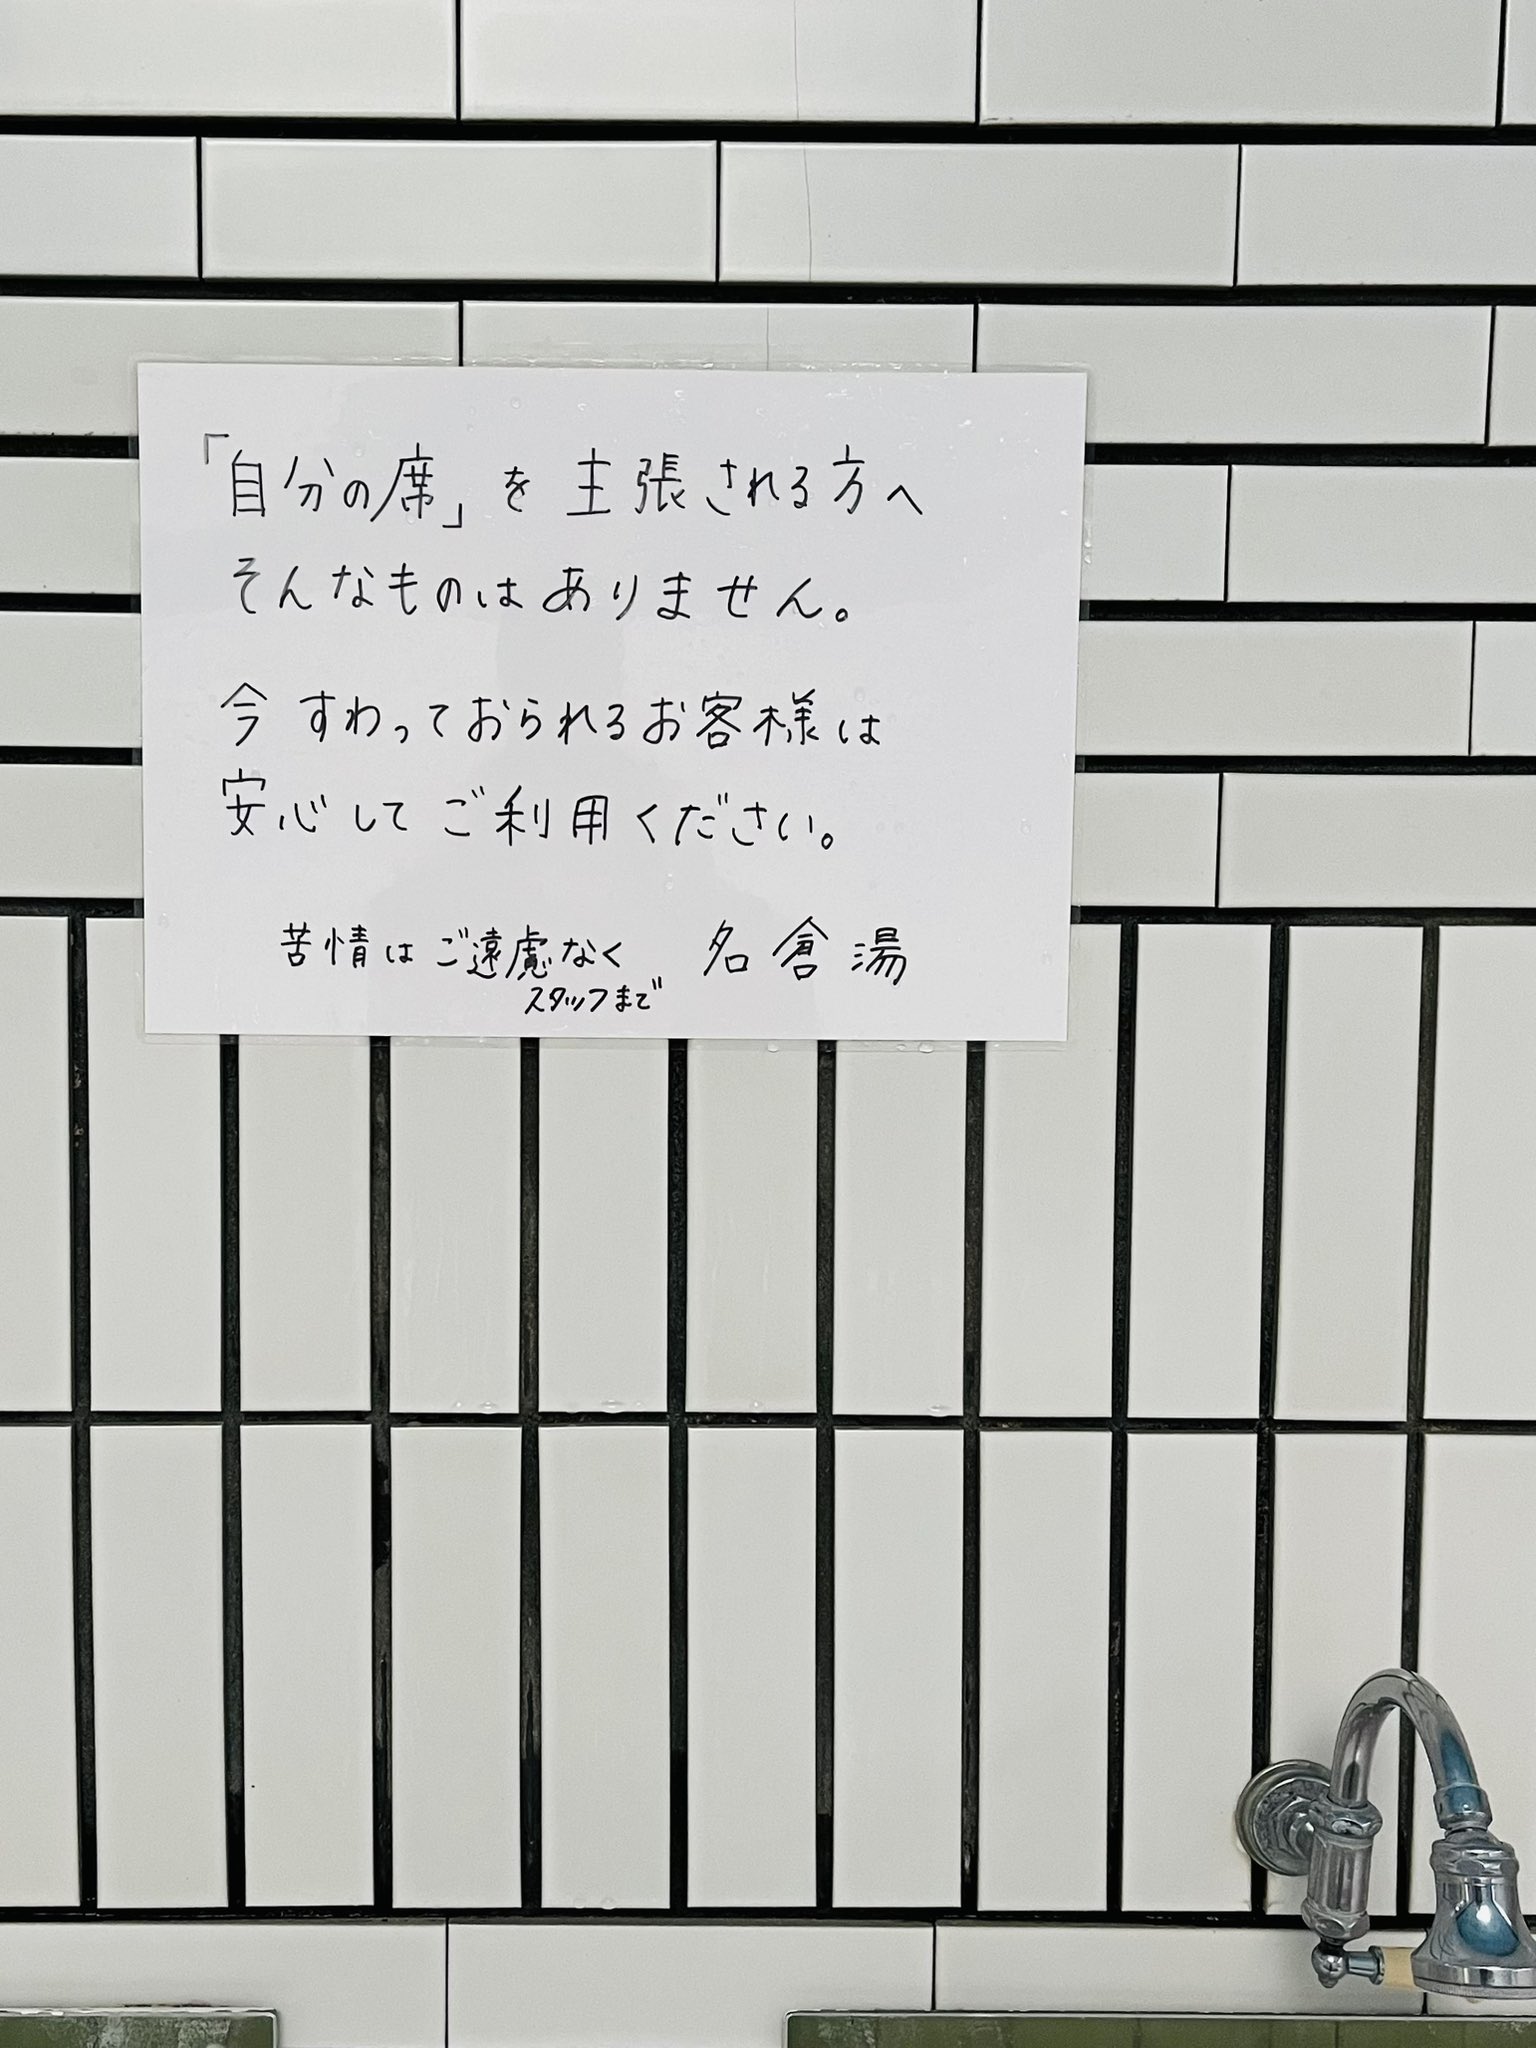 「自分の席」を主張される方へ
そんなものはありません。
今すわっておられるお客様は
安心してご利用ください。
苦情はご遠慮なく
スタッフまで
名倉湯